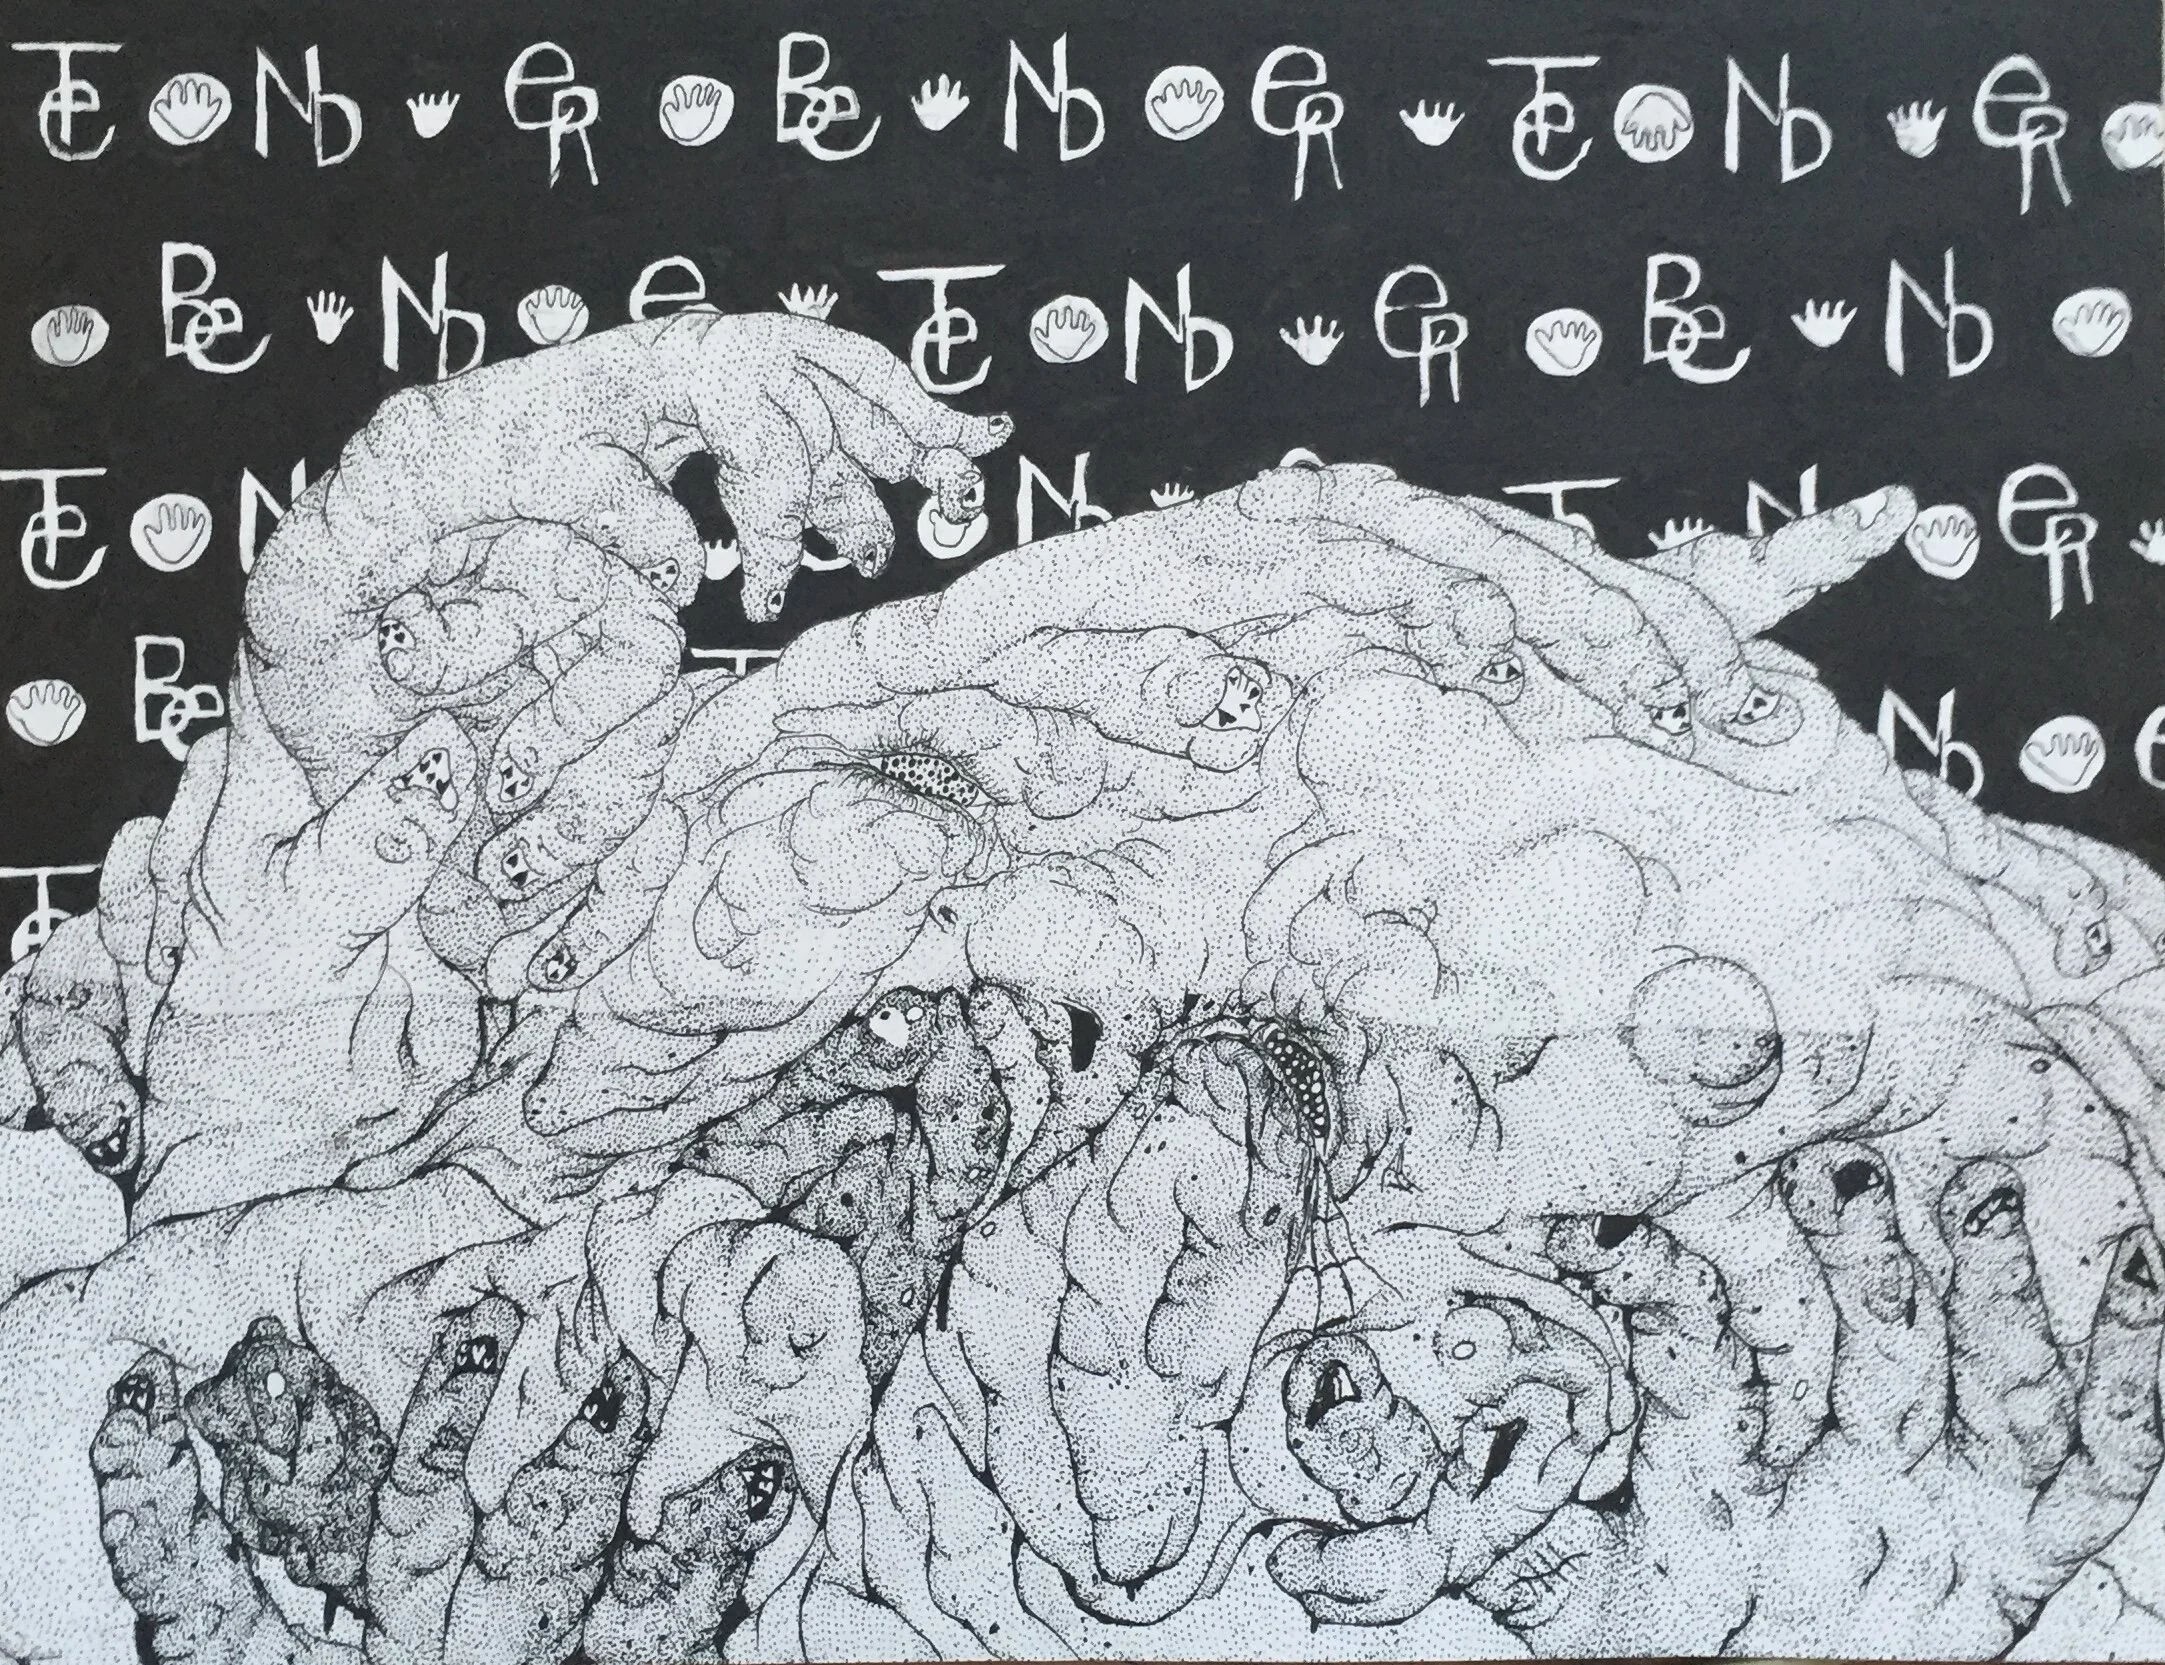 Te ND eR Be ND eR Te ND eR
Be ND e Te ND eR Be ND
Te N N T N eR
Be T ND e
Te